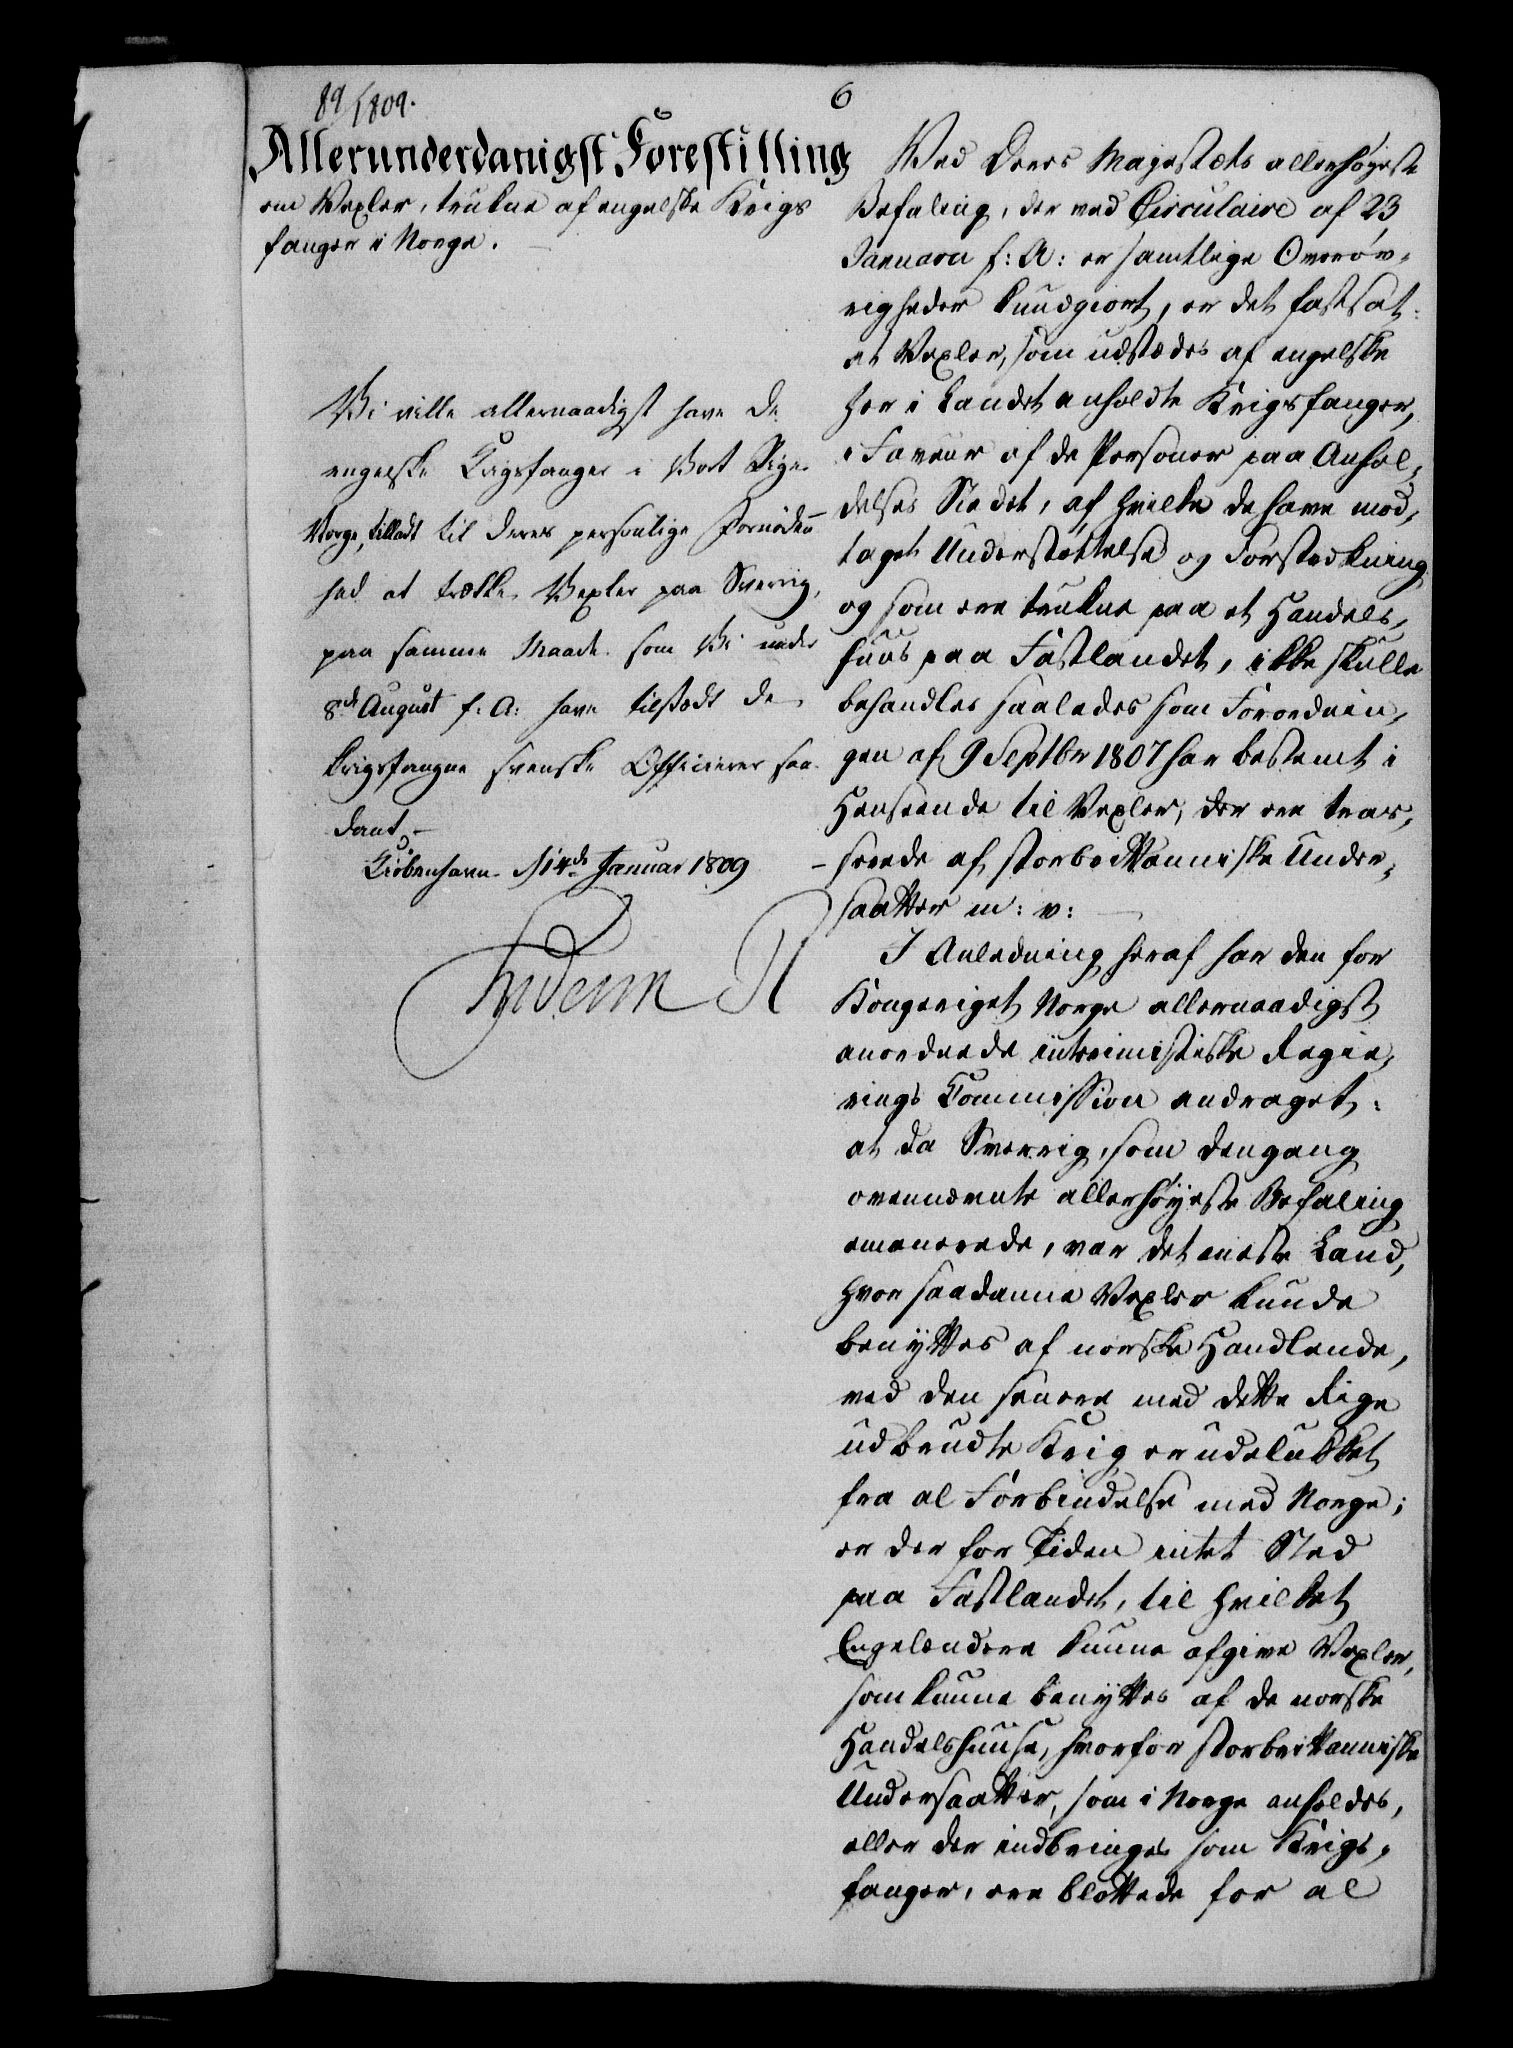 89/1809.
6
Allerunderdanigst Forestilling
om Vexler, trukne af engelske Krigs
fanger i Norge.
Vi ville allernaadigst have de
engelske Krigsfanger i Vort Rige
Norge, tilladt til deres personlige Fornöden
hed at trække Vexler paa Sverrig,
paa samme Maade som Vi under
8de August f: A: have tilstædt de
krigsfangne svenske Officierer saa
dant,
Kiöbenhavn d 14de Januar 1809
Frideric R
Ved Deres Majestæts allerhöyeste
Befaling, der ved Circulaire af 23
Januarii f: A: er samtlige Overöv-
righeder kundgiort, er det fastsat:
at Vexler, som udstædes af engelske
her i Landet anholdte Krigsfanger,
i Faveur af de Personer paa Anhol-
delses Stedet, af hvilke de have mod-
taget Understöttelse og Forstrækning
og som ere trukne paa et Handels-
huus paa Fastlandet, ikke skulle
behandles saaledes som Forordnin-
gen af 9 Septbr 1807 har bestemt i
Henseende til Vexler, der ere tras-
serede af storbrittanniske Under-
saatter m: v:
I Anledning heraf har den for
Kongeriget Norge allernaadigst
anordnede interimistiske Regie-
rings Commission andraget:
at da Sverrig, som dengang
ovennævnte allerhöyeste Befaling
emanerede, var det eneste Land,
hvor saadanne Vexler kunde
benyttes af norske Handlende,
ved den senere med dette Rige
udbrudte Krig er udelukket
fra al Forbindelse med Norge;
er der for Tiden intet Sted
paa Fastlandet, til hvilket
Engelændere kunne afgive Vexler,
som kunne benyttes af de norske
Handelshuuse, hvorfor storbrittanniske
Undersaatter, som i Norge anholdes,
eller der indbringes som Krigs-
fanger, ere blottede for al